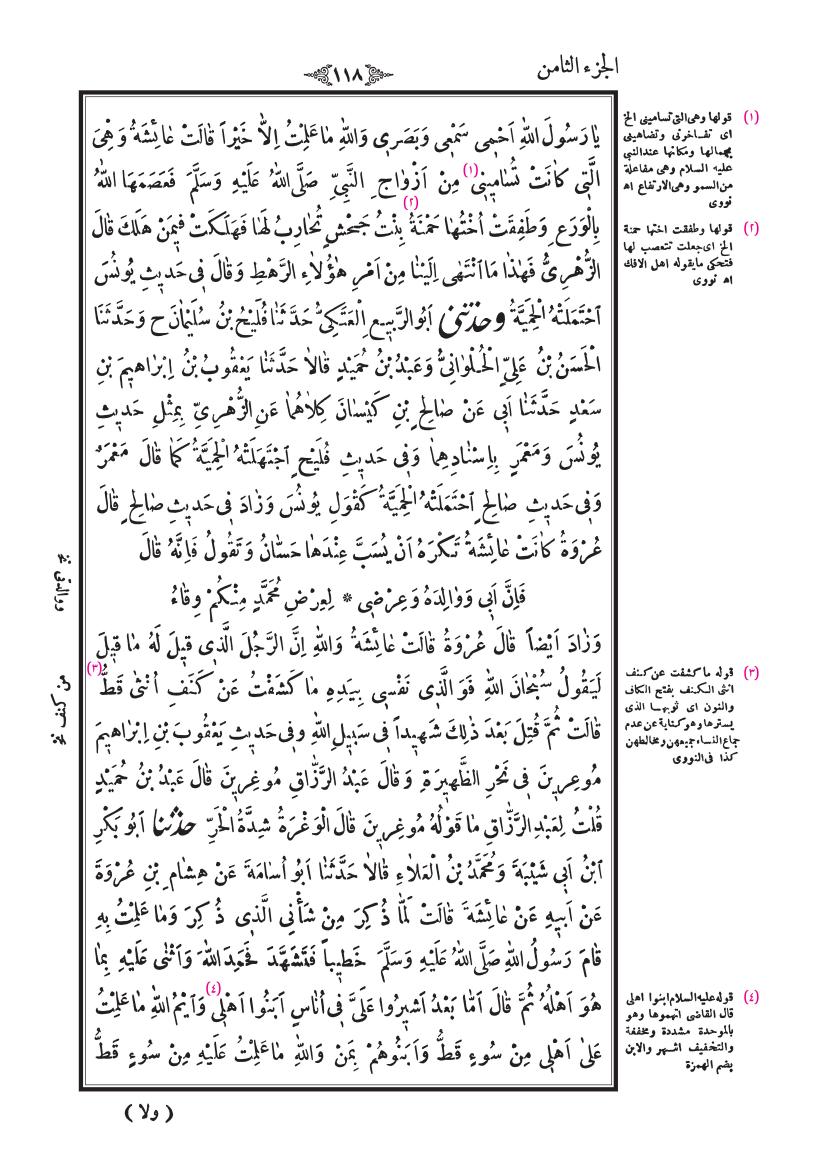 الجزء الثامن
١١٨
يَا رَسُولَ اللهِ اَحْمِى سَمْعِى وَبَصَرِى وَاللهِ مَا عَلِمْتُ اِلاَّ خَيْرًا قَالَتْ عَائِشَةُ وَهْىَ
الَّتِى كَانَتْ تُسَامِينِى (١) مِنْ اَزْوَاجِ النَّبِىِّ صَلَّى اللهُ عَلَيْهِ وَسَلَّمَ فَعَصَمَهَا اللهُ
بِالْوَرَعِ وَطَفِقَتْ اُخْتُهَا حَمْنَةُ (٢) بِنْتُ جَحْشٍ تُحَارِبُ لَهَا فَهَلَكَتْ فِيمَنْ هَلَكَ قَالَ
الزُّهْرِىُّ فَهٰذَا مَا انْتَهٰى اِلَيْنَا مِنْ اَمْرِ هٰؤُلاَءِ الرَّهْطِ وَقَالَ فِى حَدِيثِ يُونُسَ
احْتَمَلَتْهُ الْحَمِيَّةُ وحَدَّثَنِى اَبُو الرَّبِيعِ الْعَتَكِىُّ حَدَّثَنَا فُلَيْحُ بْنُ سُلَيْمَانَ ح وَحَدَّثَنَا
الْحَسَنُ بْنُ عَلِىٍّ الْحُلْوَانِىُّ وَعَبْدُ بْنُ حُمَيْدٍ قَالاَ حَدَّثَنَا يَعْقُوبُ بْنُ اِبْرَاهِيمَ بْنِ
سَعْدٍ حَدَّثَنَا اَبِى عَنْ صَالِحِ بْنِ كَيْسَانَ كِلاَهُمَا عَنِ الزُّهْرِىِّ بِمِثْلِ حَدِيثِ
يُونُسَ وَمَعْمَرٍ بِاِسْنَادِهِمَا وَفِى حَدِيثِ فُلَيْحٍ اجْتَهَلَتْهُ الْحَمِيَّةُ كَمَا قَالَ مَعْمَرٌ
وَفِى حَدِيثِ صَالِحٍ احْتَمَلَتْهُ الْحَمِيَّةُ كَقَوْلِ يُونُسَ وَزَادَ فِى حَدِيثِ صَالِحٍ قَالَ
عُرْوَةُ كَانَتْ عَائِشَةُ تَكْرَهُ اَنْ يُسَبَّ عِنْدَهَا حَسَّانُ وَتَقُولُ فَاِنَّهُ قَالَ
فَاِنَّ اَبِى وَوَالِدَهُ وَعِرْضِى * لِعِرْضِ مُحَمَّدٍ مِنْكُمْ وِقَاءُ
وَزَادَ اَيْضًا قَالَ عُرْوَةُ قَالَتْ عَائِشَةُ وَاللهِ اِنَّ الرَّجُلَ الَّذِى قِيلَ لَهُ مَا قِيلَ
لَيَقُولُ سُبْحَانَ اللهِ فَوَالَّذِى نَفْسِى بِيَدِهِ مَا كَشَفْتُ عَنْ كَنَفِ اُنْثٰى قَطُّ (٣)
قَالَتْ ثُمَّ قُتِلَ بَعْدَ ذٰلِكَ شَهِيدًا فِى سَبِيلِ اللهِ وَفِى حَدِيثِ يَعْقُوبَ بْنِ اِبْرَاهِيمَ
مُوعِرِينَ فِى نَحْرِ الظَّهِيرَةِ وَقَالَ عَبْدُ الرَّزَّاقِ مُوغِرِينَ قَالَ عَبْدُ بْنُ حُمَيْدٍ
قُلْتُ لِعَبْدِ الرَّزَّاقِ مَا قَوْلُهُ مُوغِرِينَ قَالَ الْوَغْرَةُ شِدَّةُ الْحَرِّ حَدَّثَنَا اَبُو بَكْرِ
ابْنُ اَبِى شَيْبَةَ وَمُحَمَّدُ بْنُ الْعَلاَءِ قَالاَ حَدَّثَنَا اَبُو اُسَامَةَ عَنْ هِشَامِ بْنِ عُرْوَةَ
عَنْ اَبِيهِ عَنْ عَائِشَةَ قَالَتْ لَمَّا ذُكِرَ مِنْ شَأْنِى الَّذِى ذُكِرَ وَمَا عَلِمْتُ بِهِ
قَامَ رَسُولُ اللهِ صَلَّى اللهُ عَلَيْهِ وَسَلَّمَ خَطِيبًا فَتَشَهَّدَ فَحَمِدَ اللهَ وَاَثْنٰى عَلَيْهِ بِمَا
هُوَ اَهْلُهُ ثُمَّ قَالَ اَمَّا بَعْدُ اَشِيرُوا عَلَىَّ فِى اُنَاسٍ اَبَنُوا اَهْلِى (٤) وَاَيْمُ اللهِ مَا عَلِمْتُ
عَلٰى اَهْلِى مِنْ سُوءٍ قَطُّ وَاَبَنُوهُمْ بِمَنْ وَاللهِ مَا عَلِمْتُ عَلَيْهِ مِنْ سُوءٍ قَطُّ
( ولا )
(١) قولها وهى التى تسامينى الخ
اى تفاخرنى وتضاهينى
بجمالها ومكانها عند النبى
عليه السلام وهى مفاعلة
من السمو وهى الارتفاع اه
نووى
(٢) قولها وطفقت اختها حمنة
الخ اى جعلت تتعصب لها
فتحكى ما يقوله اهل الافك
اه نووى
(٣) قوله ما كشفت عن كنف
انثى الكنف بفتح الكاف
والنون اى ثوبها الذى
يسترها وهو كناية عن عدم
جماع النساء جميعهن ومخالطتهن
كذا فى النووى
(٤) قوله عليه السلام ابنوا اهلى
قال القاضى اتهموها وهو
بالموحدة مشددة ومخففة
والتخفيف اشهر والابن
بضم الهمزة
ووالدتى نخ
من كنف نخ